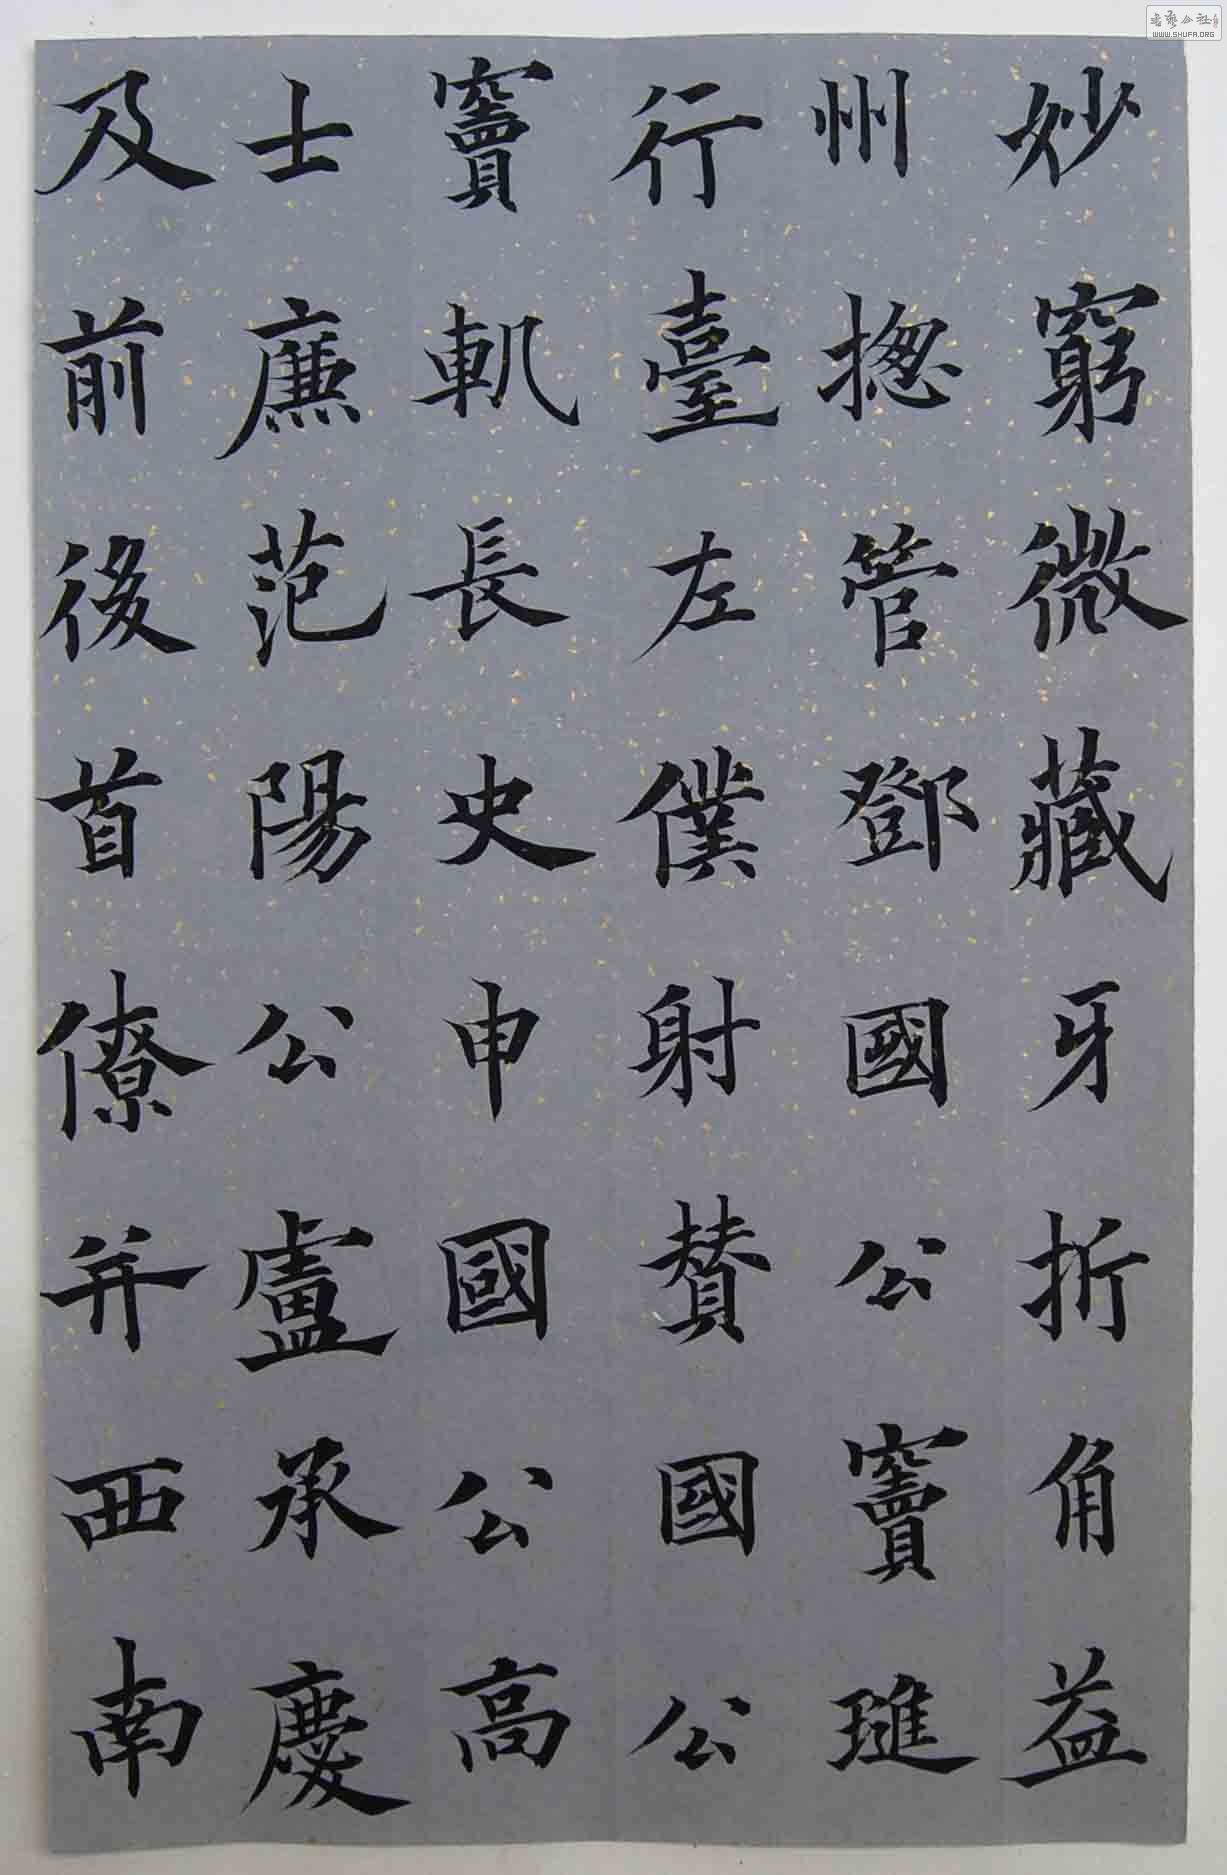 妙窮微藏牙折角益
州揔管鄧國公竇璡
行臺左僕射賛國公
竇軌長史申國公高
士廉范陽公盧承慶
及前後首僚并西南
书艺公社
WWW.SHUFA.ORG